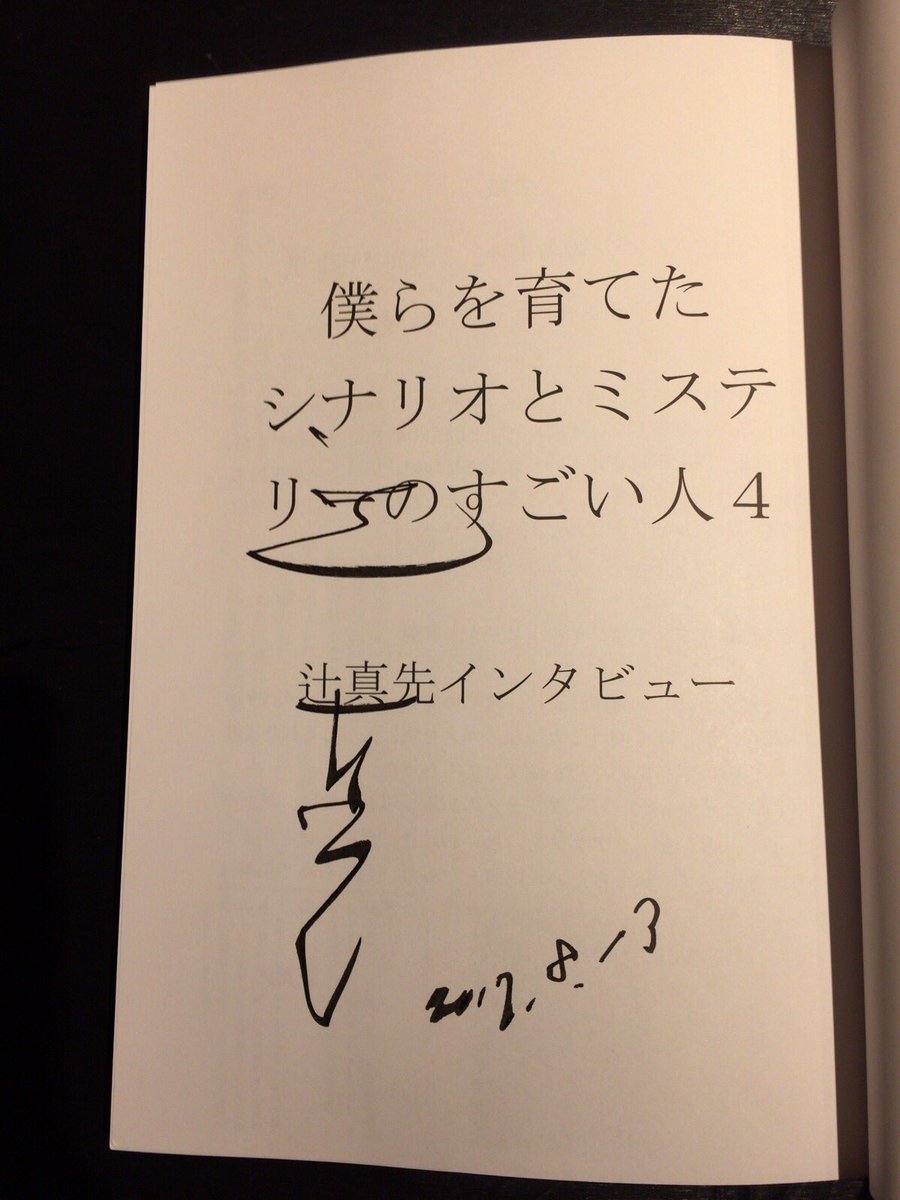 僕らを育てた
シナリオとミステ
リーのすごい人４
辻真先インタビュー
2017.8.13